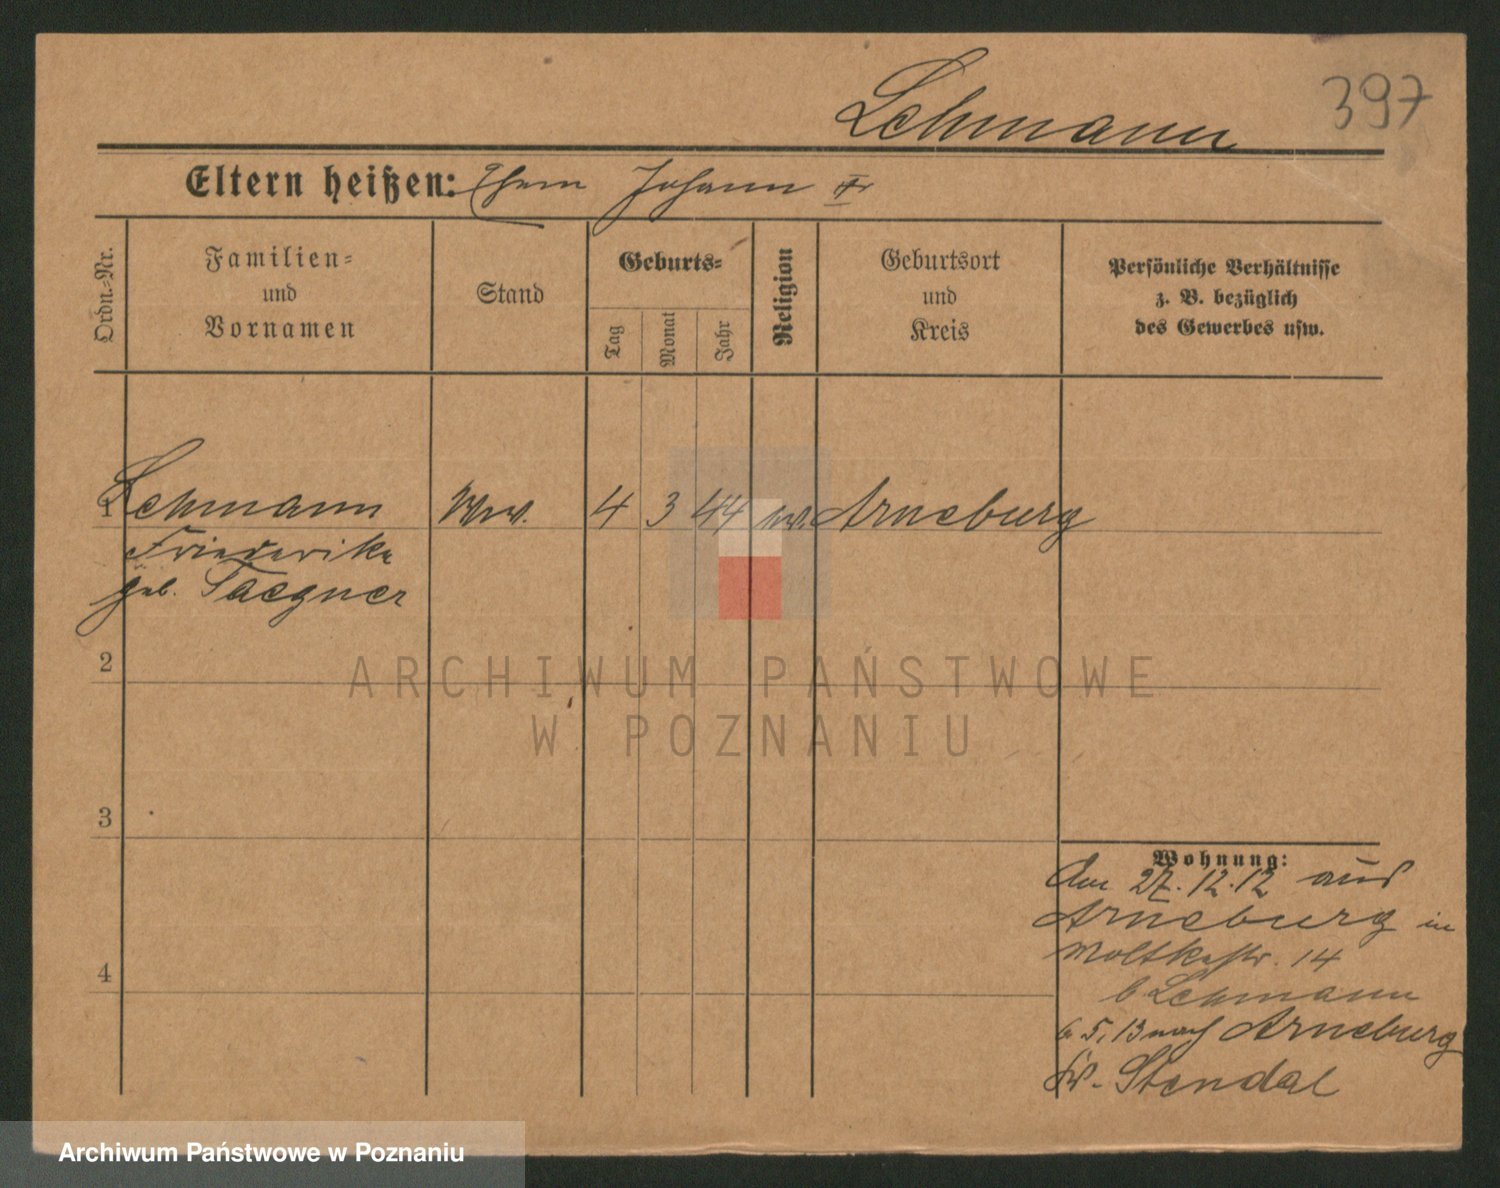 Lehmann
397
Eltern heißen: Johann
Ordn.=Nr.
Familien=
und
Vornamen
Stand
Geburts=
Tag
Monat
Jahr
Religion
Geburtsort
und
Kreis
Persönliche Verhältnisse
z. B. bezüglich
des Gewerbes usw.
1 Lehmann Ww. 4 3 44 ev. Arneburg
Friederike
geb. Taegner
2
3
4
Wohnung:
Am 27.12.12 aus
Arneburg in
Moltkestr. 14
b Lehmann
6. 5. 13 nach Arneburg
Kr. Stendal
ARCHIWUM PAŃSTWOWE
W POZNANIU
Archiwum Państwowe w Poznaniu